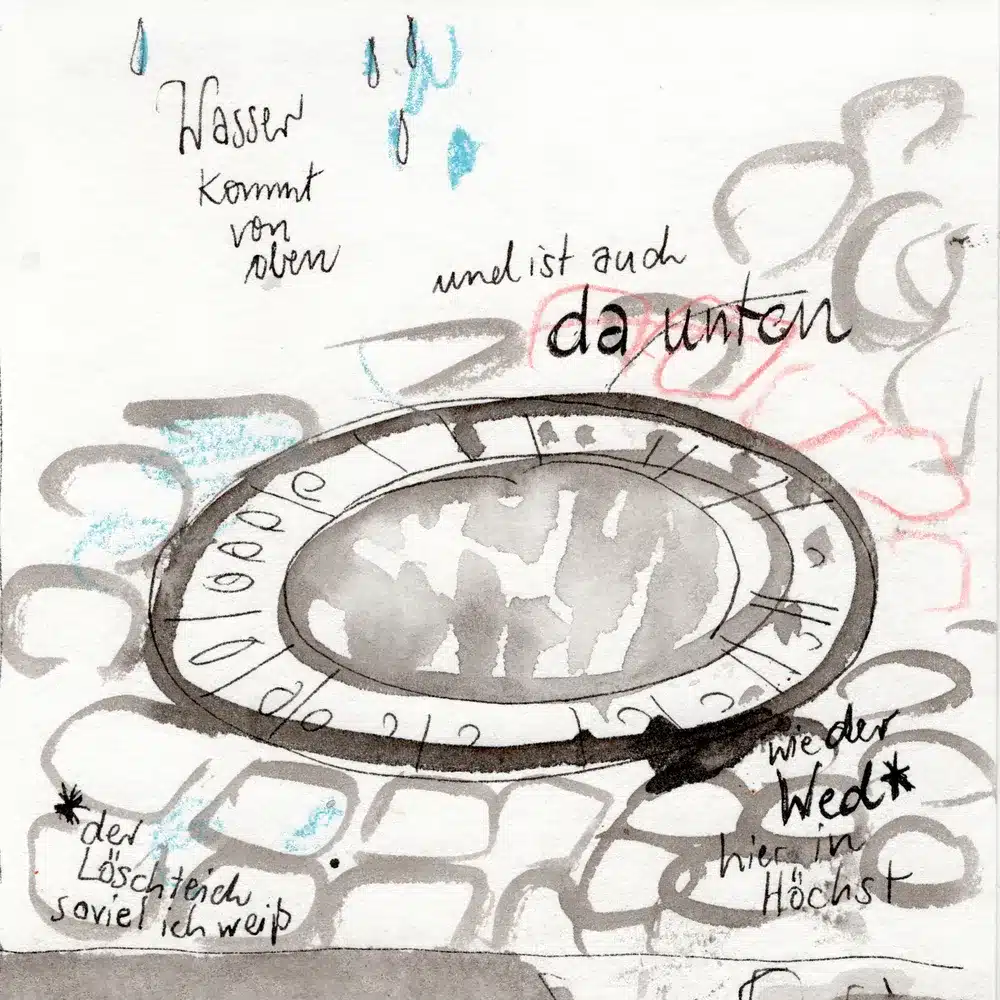 Wasser
kommt
von
oben
und ist auch
da unten
wie der
Wed*
hier in
Höchst
*der
Löschteich
soviel ich weiß